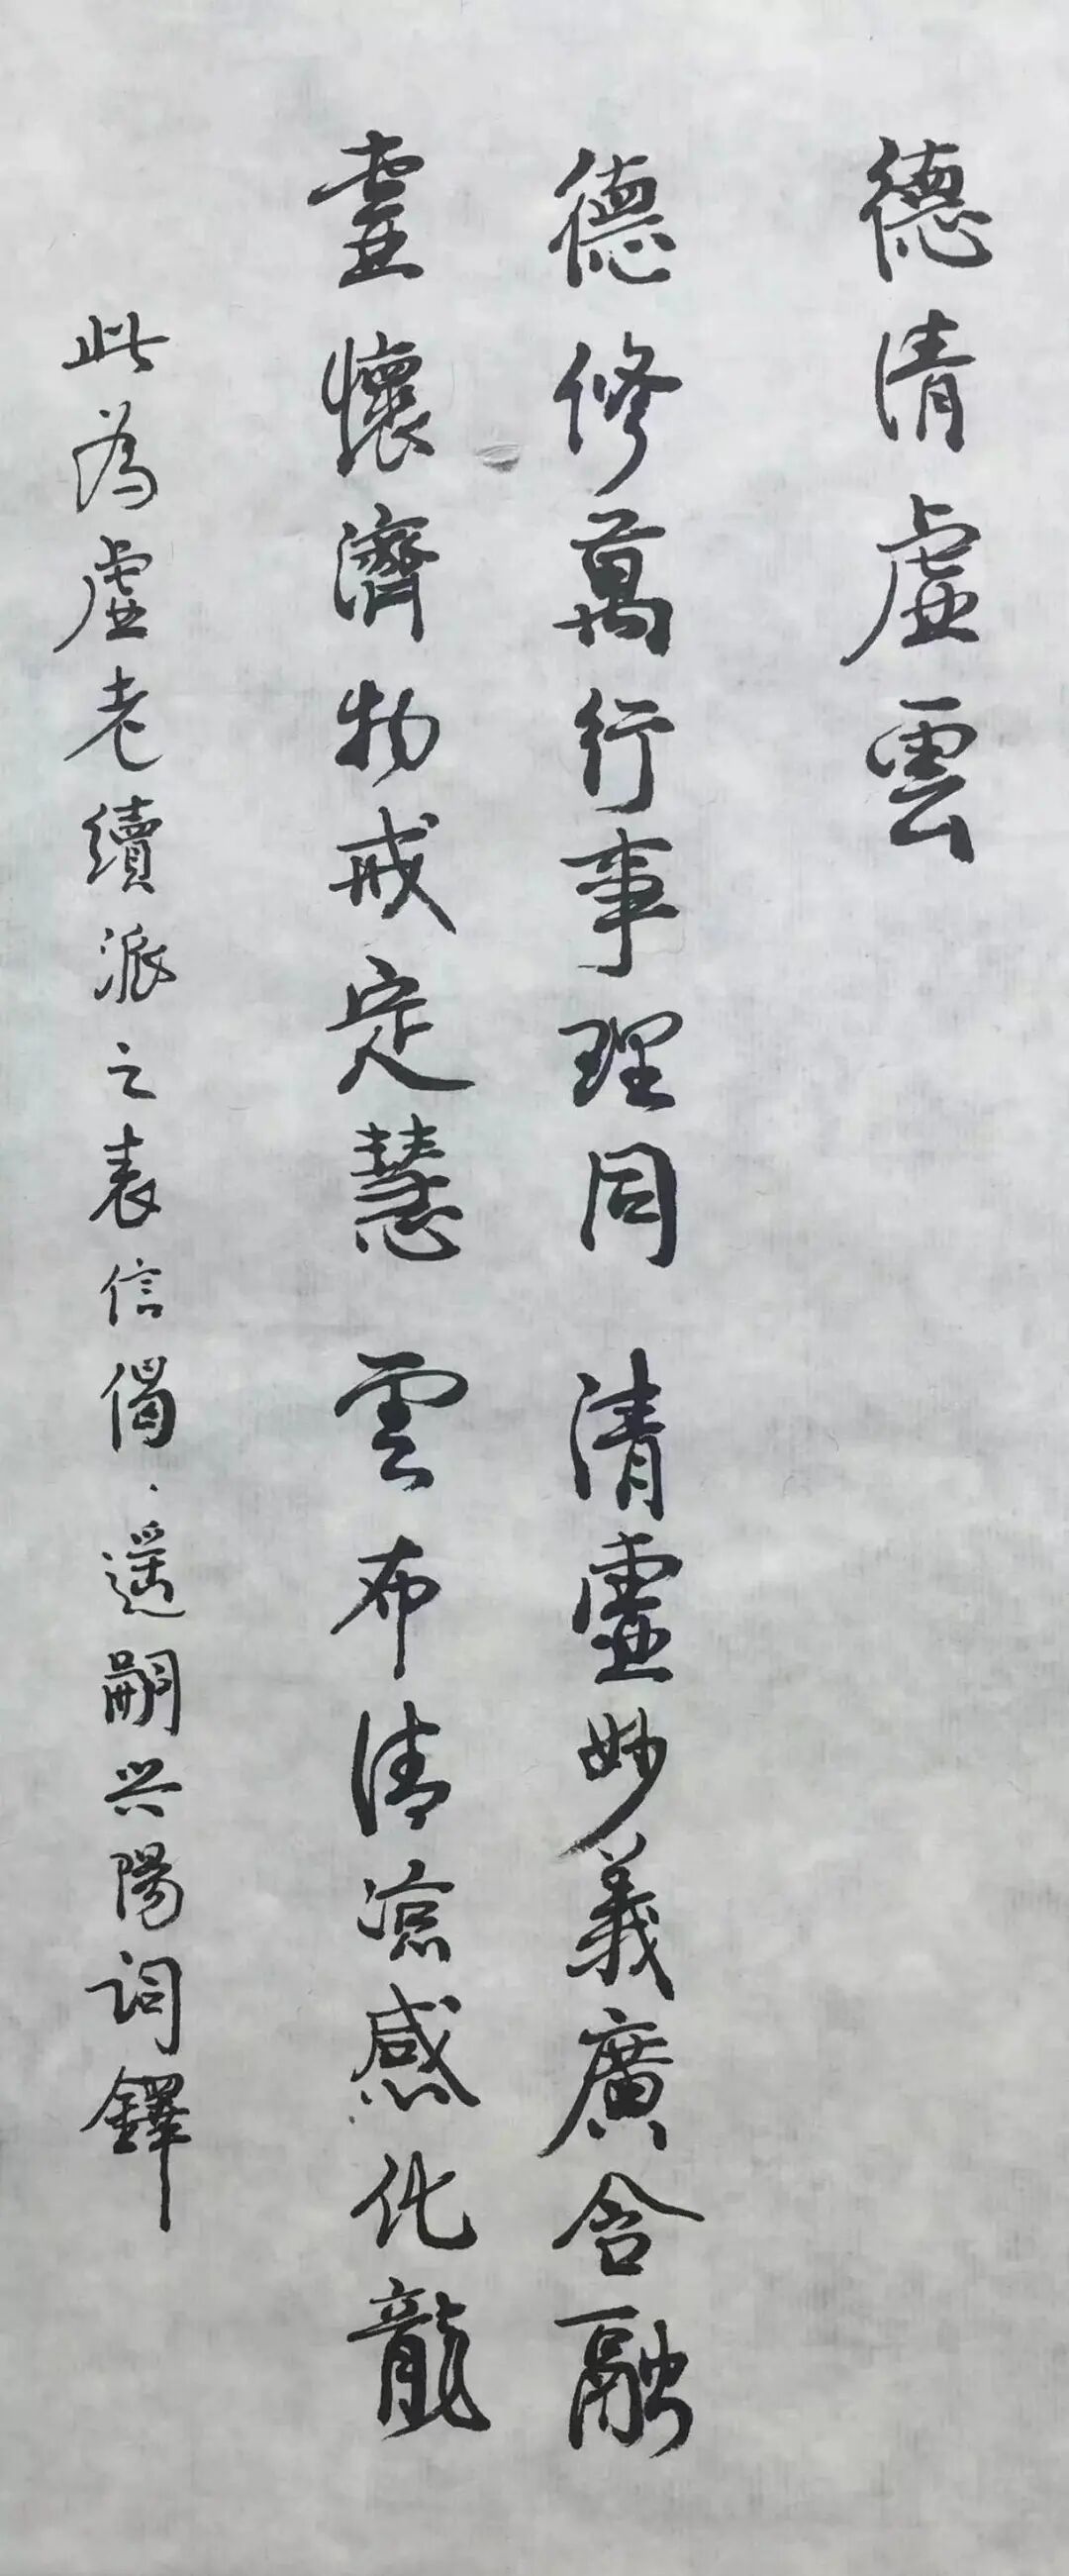 德清虛雲
德修萬行事理同 清虛妙義廣含融
虛懷濟物戒定慧 雲布清涼感化龍
此為虛老續派之表信偈、遥嗣兴陽词鐸